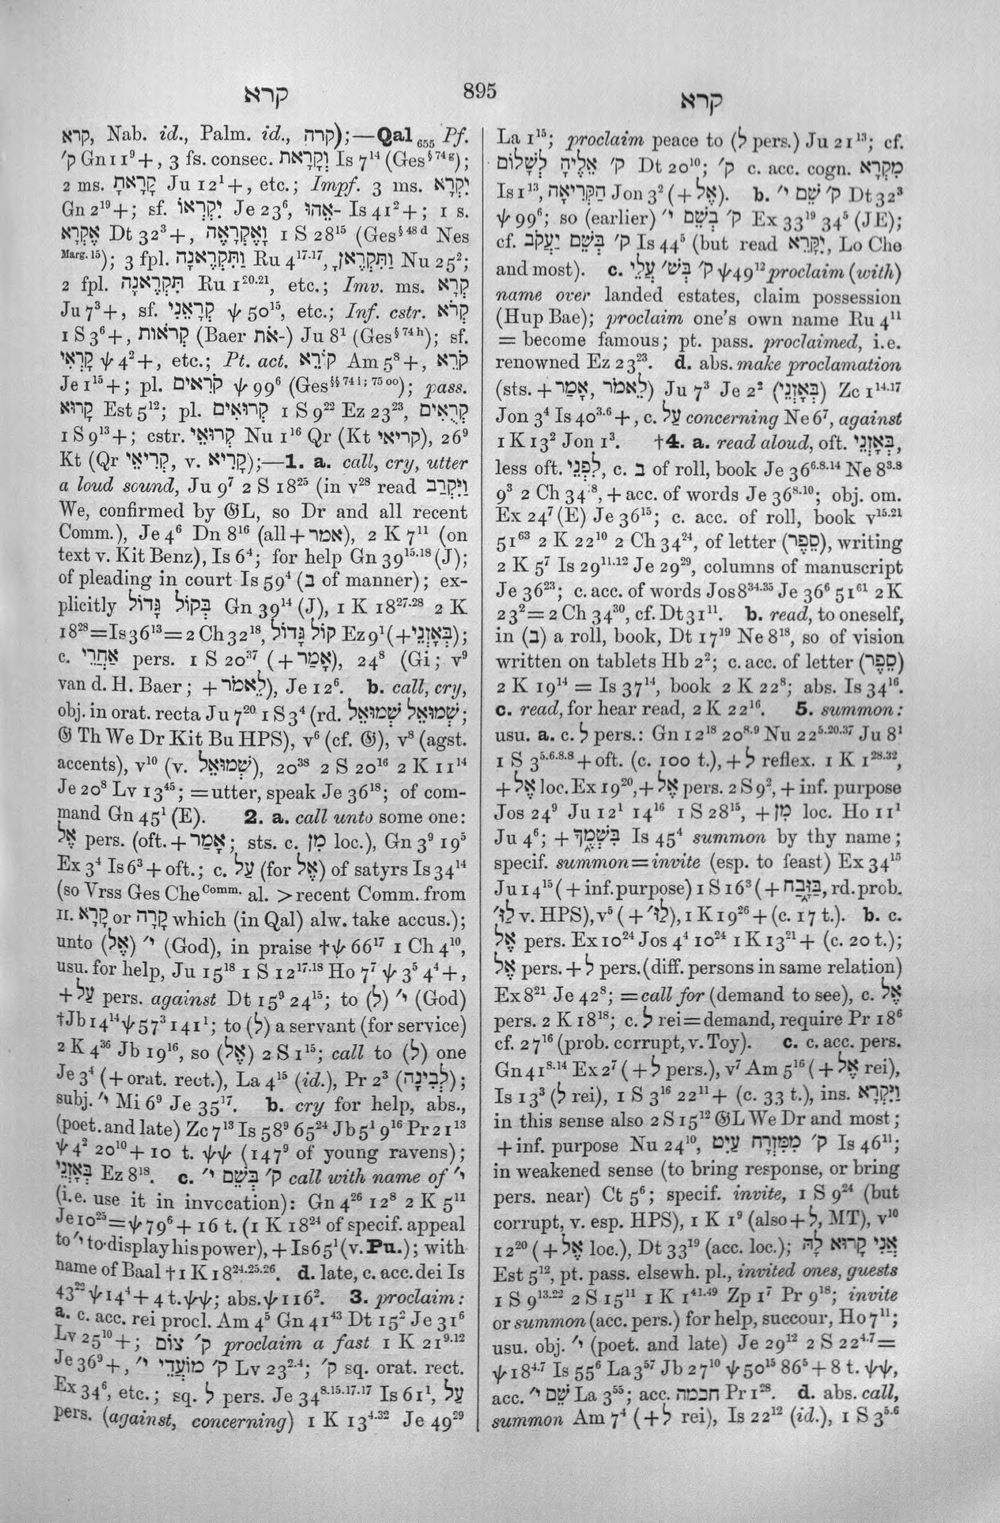 קרא
895
קרא
קרא, Nab. id., Palm. id., קרה);—Qal 655 Pf.
ק׳ Gn 11⁹+, 3 fs. consec. וְקָרָאת Is 7¹⁴ (Ges§74g);
2 ms. קָרָאתָ Ju 12¹+, etc.; Impf. 3 ms. יִקְרָא
Gn 2¹⁹+; sf. יִקְרְאוֹ Je 23⁶, ־אֵהוּ Is 41²+; 1 s.
אֶקְרָא Dt 32³+, וָאֶקְרָאֶה 1 S 28¹⁵ (Ges§48d Nes
Marg. 15); 3 fpl. וַתִּקְרֶאנָה Ru 4¹⁷·¹⁷, וַתִּקְרֶאןָ Nu 25²;
2 fpl. תִּקְרֶאנָה Ru 1²⁰·²¹, etc.; Imv. ms. קְרָא
Ju 7³+, sf. קְרָאֵנִי ψ 50¹⁵, etc.; Inf. cstr. קְרֹא
1 S 3⁶+, קְראוֹת (Baer ־אֹת) Ju 8¹ (Ges§74h); sf.
קָרְאִי ψ 4²+, etc.; Pt. act. קוֹרֵא Am 5⁸+, קֹרֵא
Je 1¹⁵+; pl. קֹרְאִים ψ 99⁶ (Ges§§74i; 75oo); pass.
קָרוּא Est 5¹²; pl. קְרוּאִים 1 S 9²² Ez 23²³, קְרֻאִים
1 S 9¹³+; cstr. קְרוּאֵי Nu 1¹⁶ Qr (Kt קריאי), 26⁹
Kt (Qr קְרִיאֵי, v. קָרִיא);—1. a. call, cry, utter
a loud sound, Ju 9⁷ 2 S 18²⁵ (in v²⁸ read וַיִּקְרַב
We, confirmed by 𝔊L, so Dr and all recent
Comm.), Je 4⁶ Dn 8¹⁶ (all + אמר), 2 K 7¹¹ (on
text v. Kit Benz), Is 6⁴; for help Gn 39¹⁵·¹⁸ (J);
of pleading in court Is 59⁴ (בְּ of manner); ex-
plicitly בְּקוֹל גָּדוֹל Gn 39¹⁴ (J), 1 K 18²⁷·²⁸ 2 K
18²⁸=Is 36¹³=2 Ch 32¹⁸, קוֹל גָּדוֹל Ez 9¹ (+בְּאָזְנַי);
c. אַחֲרֵי pers. 1 S 20³⁷ (+אָמַר), 24⁸ (Gi; v⁹
van d. H. Baer; + לֵאמֹר), Je 12⁶. b. call, cry,
obj. in orat. recta Ju 7²⁰ 1 S 3⁴ (rd. שְׁמוּאֵל שְׁמוּאֵל;
𝔊 Th We Dr Kit Bu HPS), v⁶ (cf. 𝔊), v⁸ (agst.
accents), v¹⁰ (v. שְׁמוּאֵל), 20³⁸ 2 S 20¹⁶ 2 K 11¹⁴
Je 20⁸ Lv 13⁴⁵; =utter, speak Je 36¹⁸; of com-
mand Gn 45¹ (E). 2. a. call unto some one:
אֶל pers. (oft. + אָמַר; sts. c. מִן loc.), Gn 3⁹ 19⁵
Ex 3⁴ Is 6³ + oft.; c. עַל (for אֶל) of satyrs Is 34¹⁴
(so Vrss Ges Che Comm. al. >recent Comm. from
II. קָרָא or קָרָה which (in Qal) alw. take accus.);
unto (אֶל) י׳ (God), in praise †ψ 66¹⁷ 1 Ch 4¹⁰,
usu. for help, Ju 15¹⁸ 1 S 12¹⁷·¹⁸ Ho 7⁷ ψ 3⁵ 4⁴+,
+ עַל pers. against Dt 15⁹ 24¹⁵; to (לְ) י׳ (God)
†Jb 14¹⁴ ψ 57³ 141¹; to (לְ) a servant (for service)
2 K 4³⁶ Jb 19¹⁶, so (אֶל) 2 S 1¹⁵; call to (לְ) one
Je 3⁴ (+ orat. rect.), La 4¹⁵ (id.), Pr 2³ (לַבִּינָה);
subj. י׳ Mi 6⁹ Je 35¹⁷. b. cry for help, abs.,
(poet. and late) Zc 7¹³ Is 58⁹ 65²⁴ Jb 5¹ 9¹⁶ Pr 21¹³
ψ 4² 20¹⁰ + 10 t. ψψ (147⁹ of young ravens);
בְּאָזְנַי Ez 8¹⁸. c. ק׳ בְּשֵׁם י׳ call with name of י׳
(i.e. use it in invocation): Gn 4²⁶ 12⁸ 2 K 5¹¹
Je 10²⁵=ψ 79⁶ + 16 t. (1 K 18²⁴ of specif. appeal
to י׳ to display his power), + Is 65¹ (v. Pu.); with
name of Baal †1 K 18²⁴·²⁵·²⁶. d. late, c. acc. dei Is
43²² ψ 14⁴ + 4 t. ψψ; abs. ψ 116². 3. proclaim:
a. c. acc. rei procl. Am 4⁵ Gn 41⁴³ Dt 15² Je 31⁶
Lv 25¹⁰+; ק׳ צוֹם proclaim a fast 1 K 21⁹·¹²
Je 36⁹+, ק׳ מוֹעֲדֵי י׳ Lv 23²·⁴; ק׳ sq. orat. rect.
Ex 34⁶, etc.; sq. לְ pers. Je 34⁸·¹⁵·¹⁷·¹⁷ Is 61¹, עַל
pers. (against, concerning) 1 K 13⁴·³² Je 49²⁹
La 1¹⁵; proclaim peace to (לְ pers.) Ju 21¹³; cf.
ק׳ אֵלֶיהָ לְשָׁלוֹם Dt 20¹⁰; ק׳ c. acc. cogn. מִקְרָא
Is 1¹³, הַקְּרִיאָה Jon 3² (+ אֶל). b. ק׳ שֵׁם י׳ Dt 32³
ψ 99⁶; so (earlier) ק׳ בְּשֵׁם י׳ Ex 33¹⁹ 34⁵ (JE);
cf. ק׳ בְּשֵׁם יַעֲקֹב Is 44⁵ (but read יִקָּרֵא, Lo Che
and most). c. ק׳ בְּשׁ׳ עֲלֵי ψ 49¹² proclaim (with)
name over landed estates, claim possession
(Hup Bae); proclaim one's own name Ru 4¹¹
= become famous; pt. pass. proclaimed, i.e.
renowned Ez 23²³. d. abs. make proclamation
(sts. + אָמַר, לֵאמֹר) Ju 7³ Je 2² (בְּאָזְנֵי) Zc 1¹⁴·¹⁷
Jon 3⁴ Is 40³·⁶+, c. עַל concerning Ne 6⁷, against
1 K 13² Jon 1³. †4. a. read aloud, oft. בְּאָזְנֵי,
less oft. לִפְנֵי, c. בְּ of roll, book Je 36⁶·⁸·¹⁴ Ne 8³·⁸
9³ 2 Ch 34¹⁸, + acc. of words Je 36⁸·¹⁰; obj. om.
Ex 24⁷ (E) Je 36¹⁵; c. acc. of roll, book v¹⁵·²¹
51⁶³ 2 K 22¹⁰ 2 Ch 34²⁴, of letter (סֵפֶר), writing
2 K 5⁷ Is 29¹¹·¹² Je 29²⁹, columns of manuscript
Je 36²³; c. acc. of words Jos 8³⁴·³⁵ Je 36⁶ 51⁶¹ 2 K
23²=2 Ch 34³⁰, cf. Dt 31¹¹. b. read, to oneself,
in (בְּ) a roll, book, Dt 17¹⁹ Ne 8¹⁸, so of vision
written on tablets Hb 2²; c. acc. of letter (סֵפֶר)
2 K 19¹⁴ = Is 37¹⁴, book 2 K 22⁸; abs. Is 34¹⁶.
c. read, for hear read, 2 K 22¹⁶. 5. summon:
usu. a. c. לְ pers.: Gn 12¹⁸ 20⁸·⁹ Nu 22⁵·²⁰·³⁷ Ju 8¹
1 S 3⁵·⁶·⁸·⁸ + oft. (c. 100 t.), + לְ reflex. 1 K 1²⁸·³²,
+ אֶל loc. Ex 19²⁰, + אֶל pers. 2 S 9², + inf. purpose
Jos 24⁹ Ju 12¹ 14¹⁶ 1 S 28¹⁵, + מִן loc. Ho 11¹
Ju 4⁶; + בִּשְׁמֶךָ Is 45⁴ summon by thy name;
specif. summon=invite (esp. to feast) Ex 34¹⁵
Ju 14¹⁵ (+ inf. purpose) 1 S 16³ (+ בַּזָּבַח, rd. prob.
לַז׳ v. HPS), v⁵ (+ לַז׳), 1 K 19²⁶ + (c. 17 t.). b. c.
אֶל pers. Ex 10²⁴ Jos 4⁴ 10²⁴ 1 K 13²¹+ (c. 20 t.);
אֶל pers. + לְ pers. (diff. persons in same relation)
Ex 8²¹ Je 42⁸; =call for (demand to see), c. אֶל
pers. 2 K 18¹⁸; c. לְ rei=demand, require Pr 18⁶
cf. 27¹⁶ (prob. corrupt, v. Toy). c. c. acc. pers.
Gn 41⁸·¹⁴ Ex 2⁷ (+ לְ pers.), v⁷ Am 5¹⁶ (+ אֶל rei),
Is 13³ (לְ rei), 1 S 3¹⁶ 22¹¹+ (c. 33 t.), ins. וַיִּקְרָא
in this sense also 2 S 15¹² 𝔊L We Dr and most;
+ inf. purpose Nu 24¹⁰, ק׳ מִמִּזְרָח עַיִט Is 46¹¹;
in weakened sense (to bring response, or bring
pers. near) Ct 5⁶; specif. invite, 1 S 9²⁴ (but
corrupt, v. esp. HPS), 1 K 1⁹ (also + לְ, MT), v¹⁰
12²⁰ (+ אֶל loc.), Dt 33¹⁹ (acc. loc.); אֲנִי קָרוּא לָהּ
Est 5¹², pt. pass. elsewh. pl., invited ones, guests
1 S 9¹³·²² 2 S 15¹¹ 1 K 1⁴¹·⁴⁹ Zp 1⁷ Pr 9¹⁸; invite
or summon (acc. pers.) for help, succour, Ho 7¹¹;
usu. obj. י׳ (poet. and late) Je 29¹² 2 S 22⁴·⁷=
ψ 18⁴·⁷ Is 55⁶ La 3⁵⁷ Jb 27¹⁰ ψ 50¹⁵ 86⁵ + 8 t. ψψ,
acc. שֵׁם י׳ La 3⁵⁵; acc. חכמה Pr 1²⁸. d. abs. call,
summon Am 7⁴ (+ לְ rei), Is 22¹² (id.), 1 S 3⁵·⁶